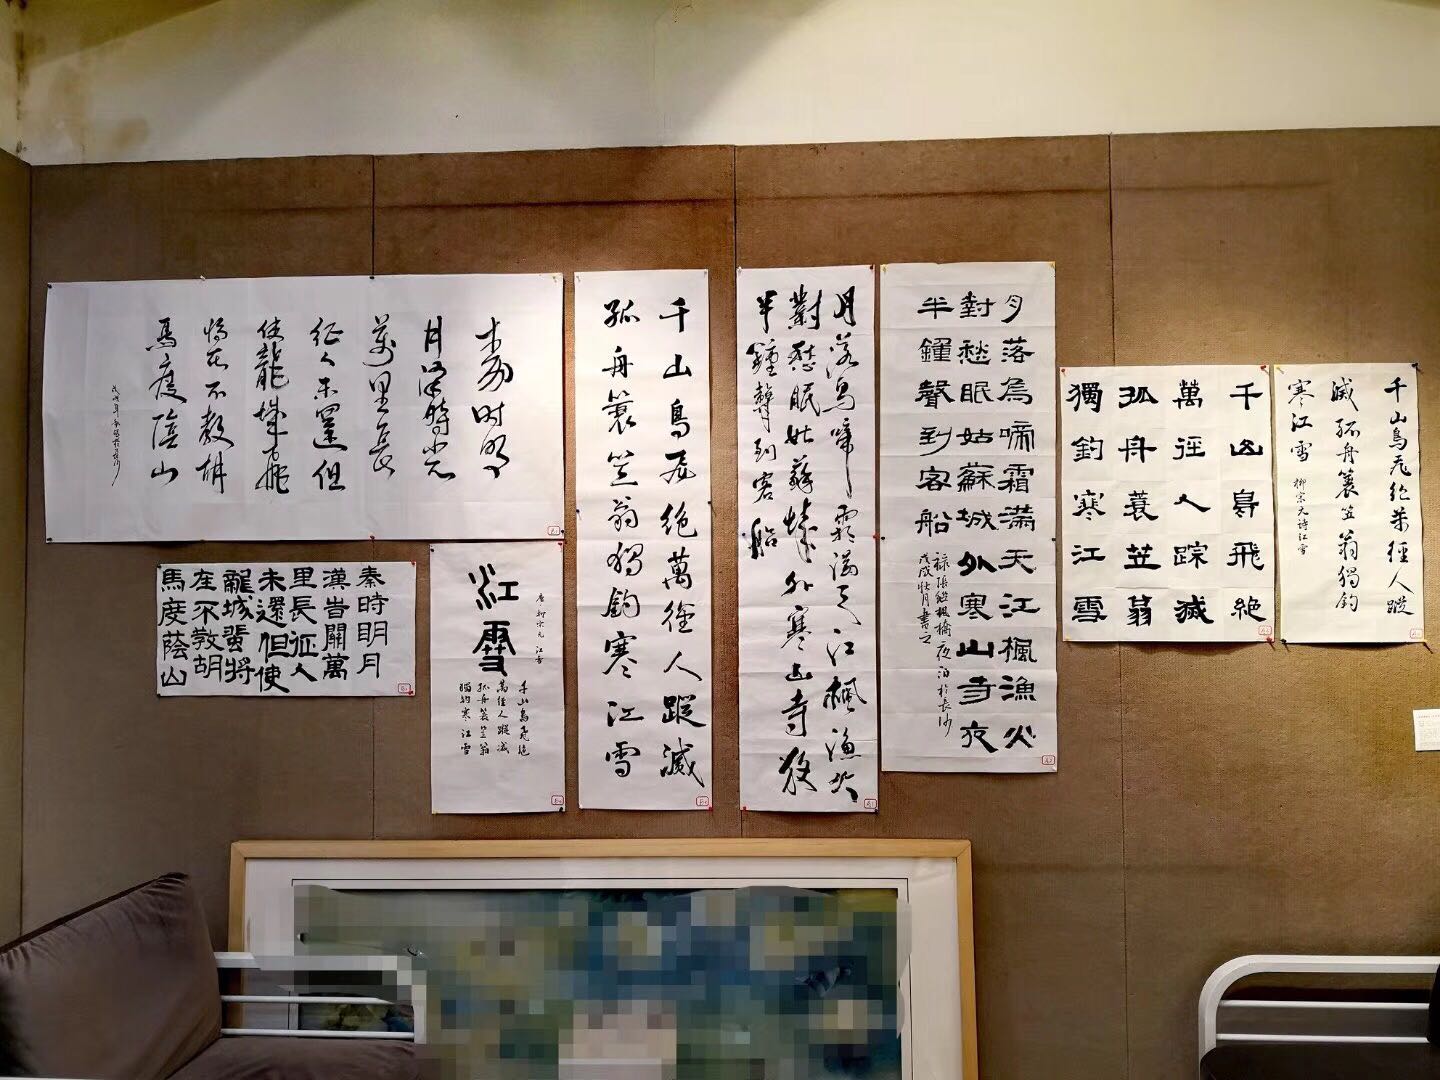 秦時明
月漢時关
萬里長
征人未還但
使龍城飛
將在不教胡
馬度陰山
秦時明月
漢旹關萬
里長征人
未還但使
龍城飛將
在不教胡
馬度蔭山
唐柳宗元江雪
江雪
千山鳥飛絶
萬徑人蹤滅
孤舟簑笠翁
獨釣寒江雪
千山鳥飛絶萬徑人蹤滅
孤舟簑笠翁獨釣寒江雪
月落烏啼霜滿天江楓漁火
對愁眠姑蘇城外寒山寺夜
半鐘聲到客船
月落烏啼霜滿天江楓漁火
對愁眠姑蘇城外寒山寺夜
半鐘聲到客船
録張繼楓橋夜泊於長沙
戊戌壯月書之
千山鳥飛絶
萬徑人踪滅
孤舟蓑笠翁
獨釣寒江雪
千山鳥飛絶萬徑人蹤
滅孤舟簑笠翁獨釣
寒江雪 柳宗元詩江雪